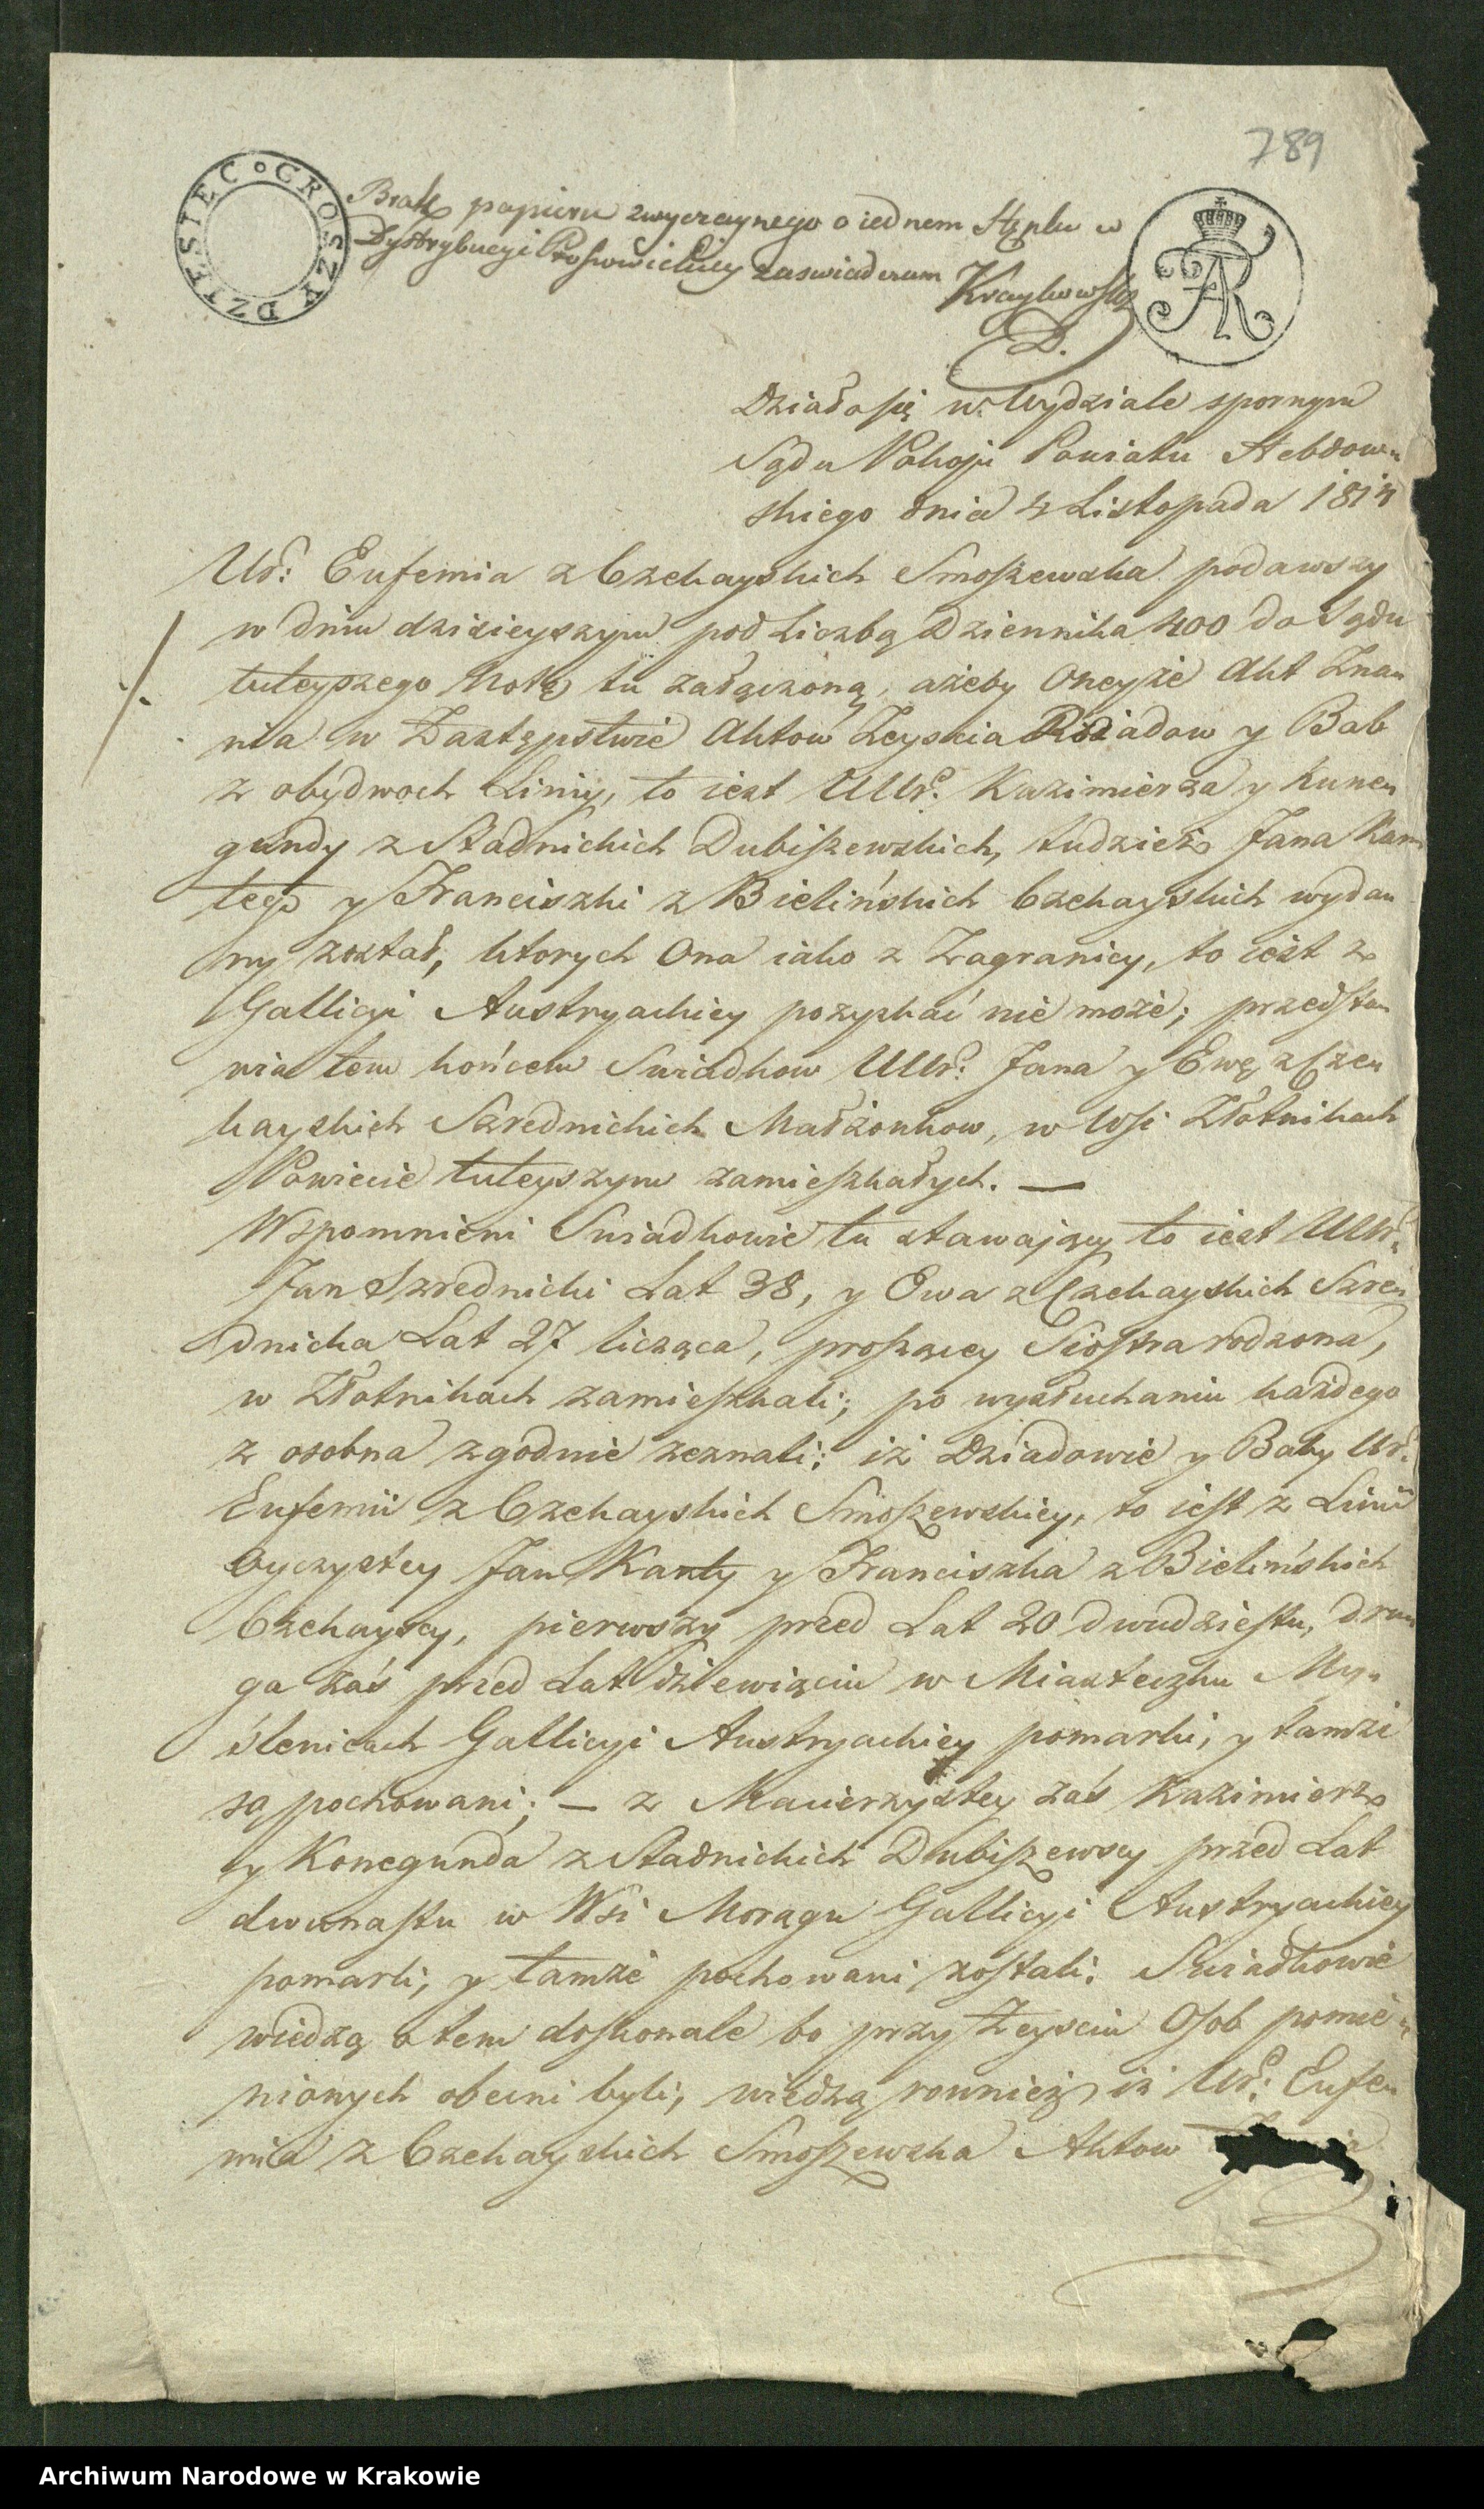 789
GROSZY DZIESIĘC
Brak papieru zwyczaynego o iednem Stęplu w
Dystrybucyi Proszowickiey zaswiadczam
D.
Działo się w Wydziale spornym
Sądu Pokoju Powiatu Hebdow-
skiego dnia 4 Listopada 1814
Ur: Eufemia z Czchayskich Smoszewska podawszy
w dniu dzisieyszym pod Liczbą Dziennika 400 do Sądu
tuteyszego Notę tu załączoną, ażeby Oneyże Akt Zna-
nia w Zastępstwie Aktow Zeyscia Dziadow y Bab
z obydwoch Linij, to iest UUr. Kazimierza y Kune-
gundy z Stadnickich Dubiszewskich, tudzież Jana Kan-
tego y Franciszki z Bielińskich Czchayskich wyda-
ny został, ktorych Ona iako z Zagranicy, to iest z
Gallicyi Austryackiey pozyskać nie może; przedsta-
wia tem końcem Swiadkow UUr: Jana y Ewę z Cze-
hayskich Szrednickich Małżonkow, w Wsi Złotnikach
Powiecie tuteyszym zamieszkałych. —
Wspomnieni Swiadkowie tu stawaiący to iest UUr:
Jan Szrednicki Lat 38, y Ewa z Czchayskich Szre-
dnicka Lat 27 licząca, proszącey Siostra rodzona,
w Złotnikach zamieszkali; po wysłuchaniu każdego
z osobna zgodnie zeznali; iż Dziadowie y Baby Ur:
Eufemii z Czchayskich Smoszewskiey, to iest z Linii
Oyczystey Jan Kanty y Franciszka z Bielińskich
Czchayscy, pierwszy przed Lat 20 dwudziestu, dru-
ga zaś przed Lat dziewięciu w Miasteczku My-
ślenicach Gallicyi Austryackiey pomarli, y tamże
są pochowani; — z Macierzystey zaś Kazimierz
y Konegunda z Stadnickich Dubiszewscy przed Lat
dwunastu w Wsi Moragu Gallicyi Austryackiey
pomarli, y tamże pochowani zostali; Swiadkowie
wiedzą o tem doskonale bo przy Zeysciu Osob pomie-
nionych obecni byli, wiedzą rownież iż Ur: Eufe-
mia z Czchayskich Smoszewska Aktow
Archiwum Narodowe w Krakowie